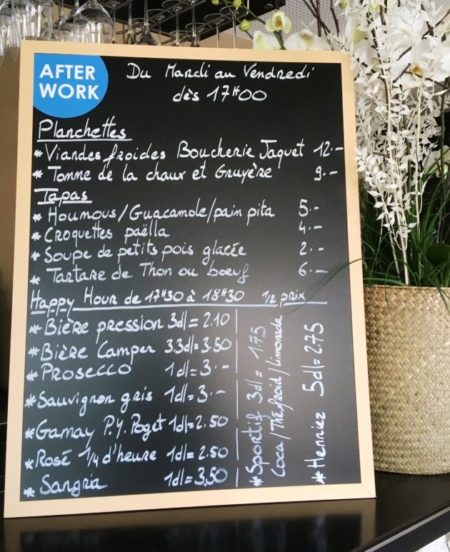 AFTER
WORK
Du Mardi au Vendredi
dès 17H00
Planchettes
* Viandes froides Boucherie Jaquet 12.-
* Tomme de la chaux et Gruyère 9.-
Tapas
* Houmous/Guacamole/pain pita 5.-
* Croquettes paëlla 4.-
* Soupe de petits pois glacée 2.-
* Tartare de Thon ou boeuf 6.-
Happy Hour de 17H30 à 18H30 1/2 prix
* Bière pression 3dl= 2.10
* Bière Camper 33dl= 3.50
* Prosecco 1dl= 3.-
* Sauvignon gris 1dl= 3.-
* Gamay P.Y. Poget 1dl= 2.50
* Rosé 1/4 d'heure 1dl= 2.50
* Sangria 1dl= 3,50
* Sportif 3dl= 1.75
Coca/Thé froid/limonade
* Henniez 5dl= 2.75